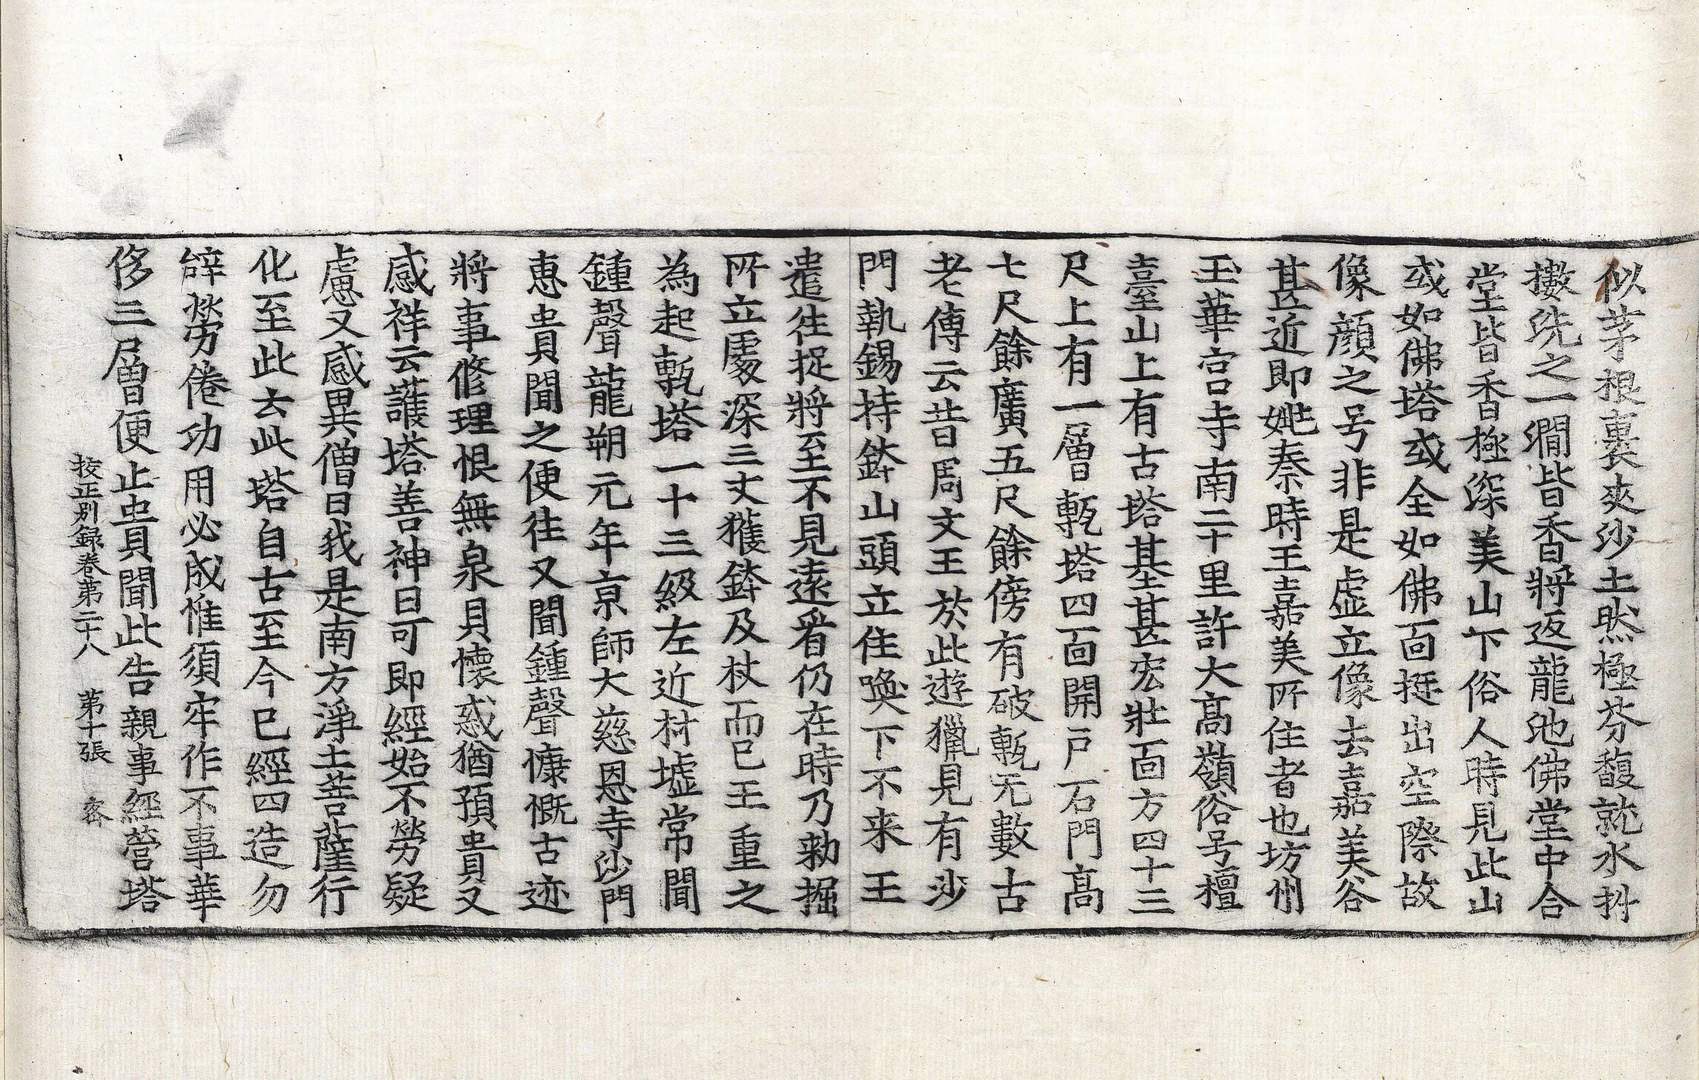 似茅根裏夾沙土然極芬馥就水抖
擻洗之一㵎皆香將返龍池佛堂中合
堂皆香極深美山下俗人時見此山
或如佛塔或全如佛面挺出空際故
像顔之号非是虚立像去嘉美谷
甚近即姚秦時王嘉美所住者也坊州
玉華宮寺南二十里許大高嶺俗号檀
臺山上有古塔基甚宏壯面方四十三
尺上有一層甎塔四面開戸石門高
七尺餘廣五尺餘傍有破甎无數古
老傳云昔周文王於此遊獵見有沙
門執錫持鉢山頭立住喚下不来王
遣往捉將至不見遠看仍在時乃勑掘
所立處深三丈獲鉢及杖而已王重之
為起甎塔一十三級左近村墟常聞
鍾聲龍朔元年京師大慈恩寺沙門
惠貴聞之便往又聞鍾聲慷慨古迹
將事修理恨無泉貝懷惑猶預貴又
感祥云護塔善神曰可即經始不勞疑
慮又感異僧曰我是南方淨土菩薩行
化至此去此塔自古至今已經四造勿
辝勞倦功用必成惟須牢作不事華
侈三層便止貴聞此告親事經營塔
挍正别録卷第二十八 第十張 密